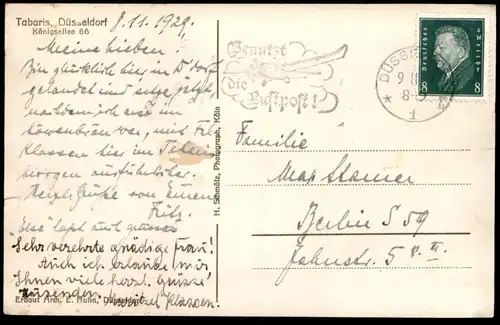 Tabaris, Düsseldorf
Königsallee 66
8.11.1929.
Meine Lieben!
Bin glücklich hier in D'dorf
gelandet und sitze jetzt,
nachdem ich erst im
Löwenbräu war, mit Frl.
Klassen hier im Tabaris
Morgen ausführlicher.
Herzl. Grüße von Eurem
Fritz.
Else läßt auch grüssen
Sehr verehrte gnädige Frau!
Auch ich erlaube mir
Ihnen viele herzl. Grüsse
zusenden Klassen.
Erbaut Arch. E. Huhn, Düsseldorf
H. Schmölz, Photograph, Köln
Benutzt
die
Luftpost!
DÜSSE
9 11
8-9
* 1
Deutsches Reich
8 8
Familie
Max Stamer
Berlin S 59
Jahnstr. 5 II